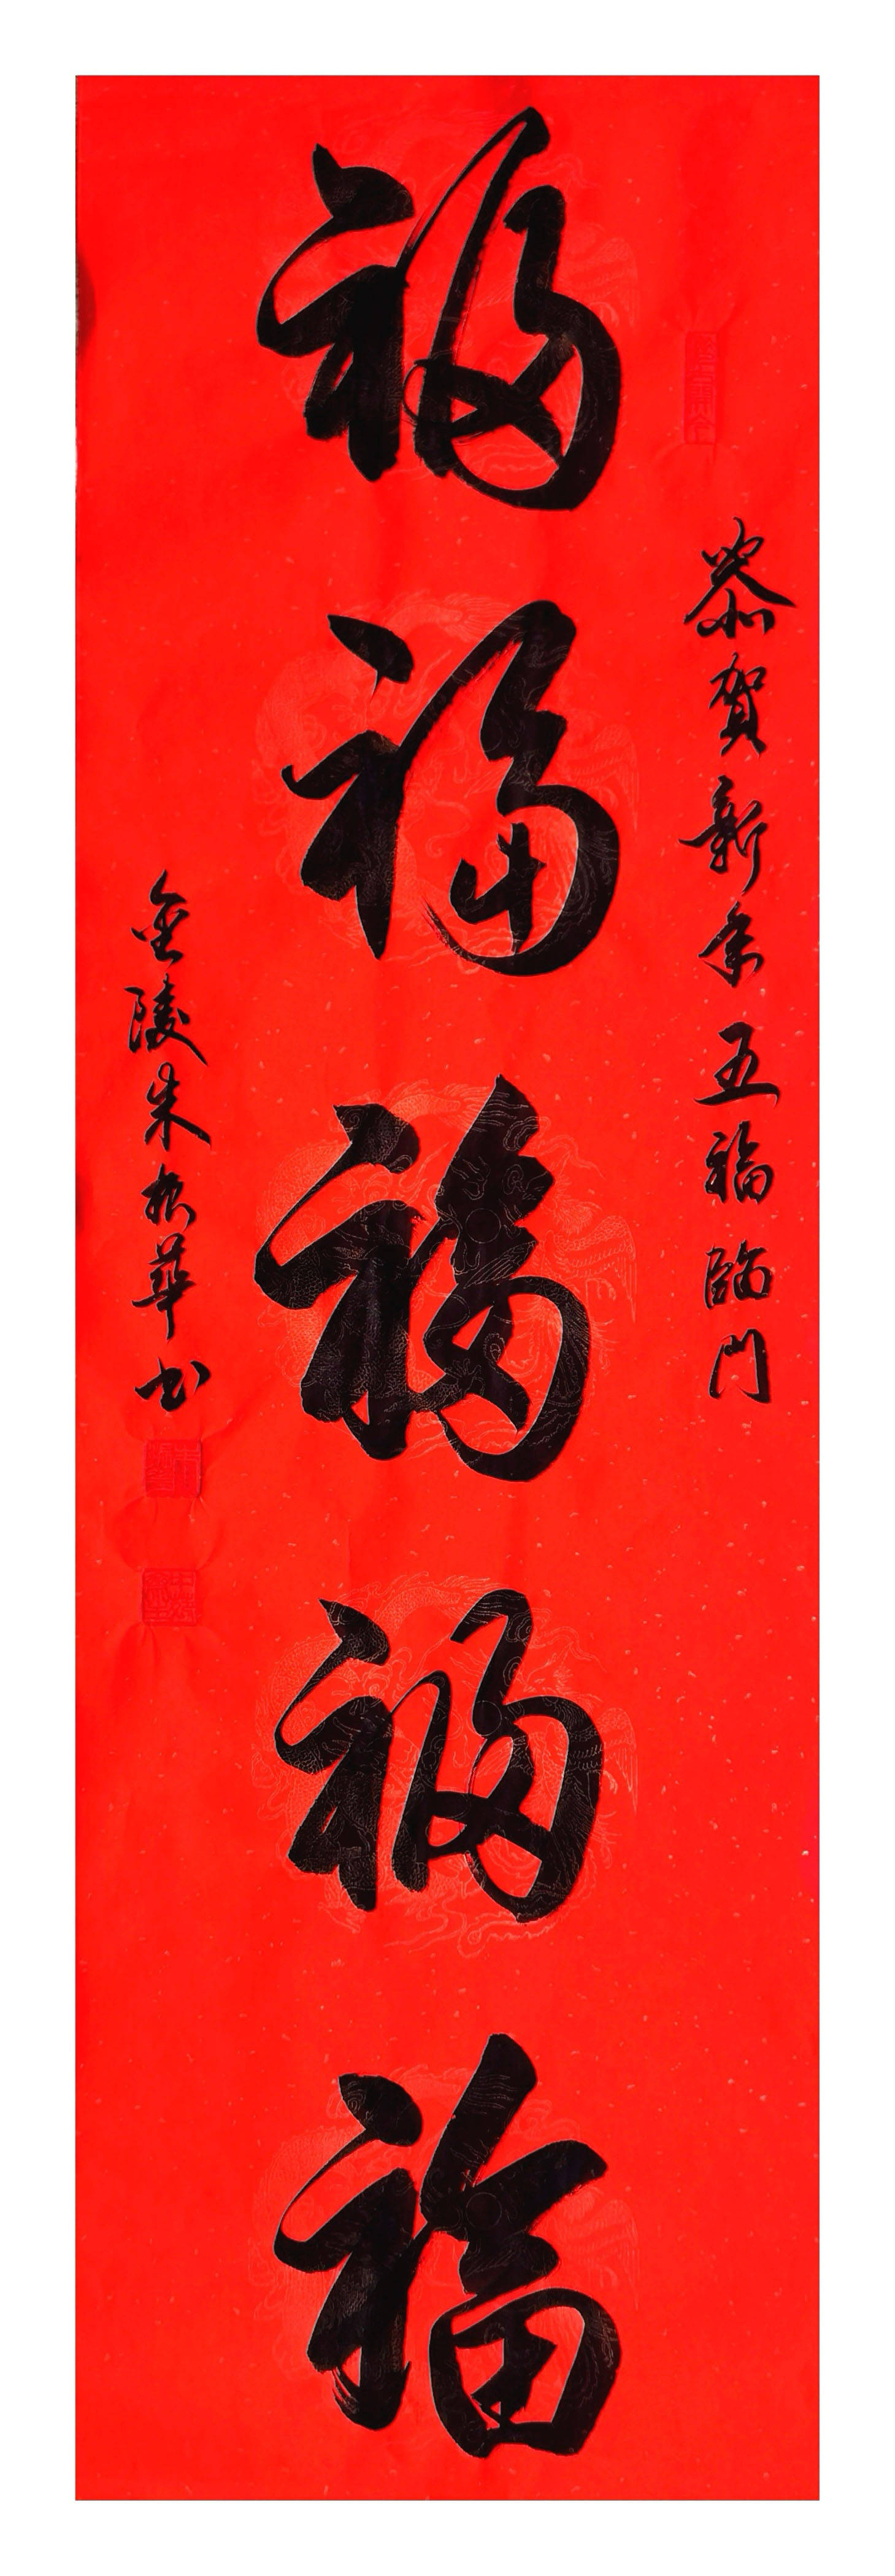 恭賀新年五福臨門
福福福福福
金陵朱振華书